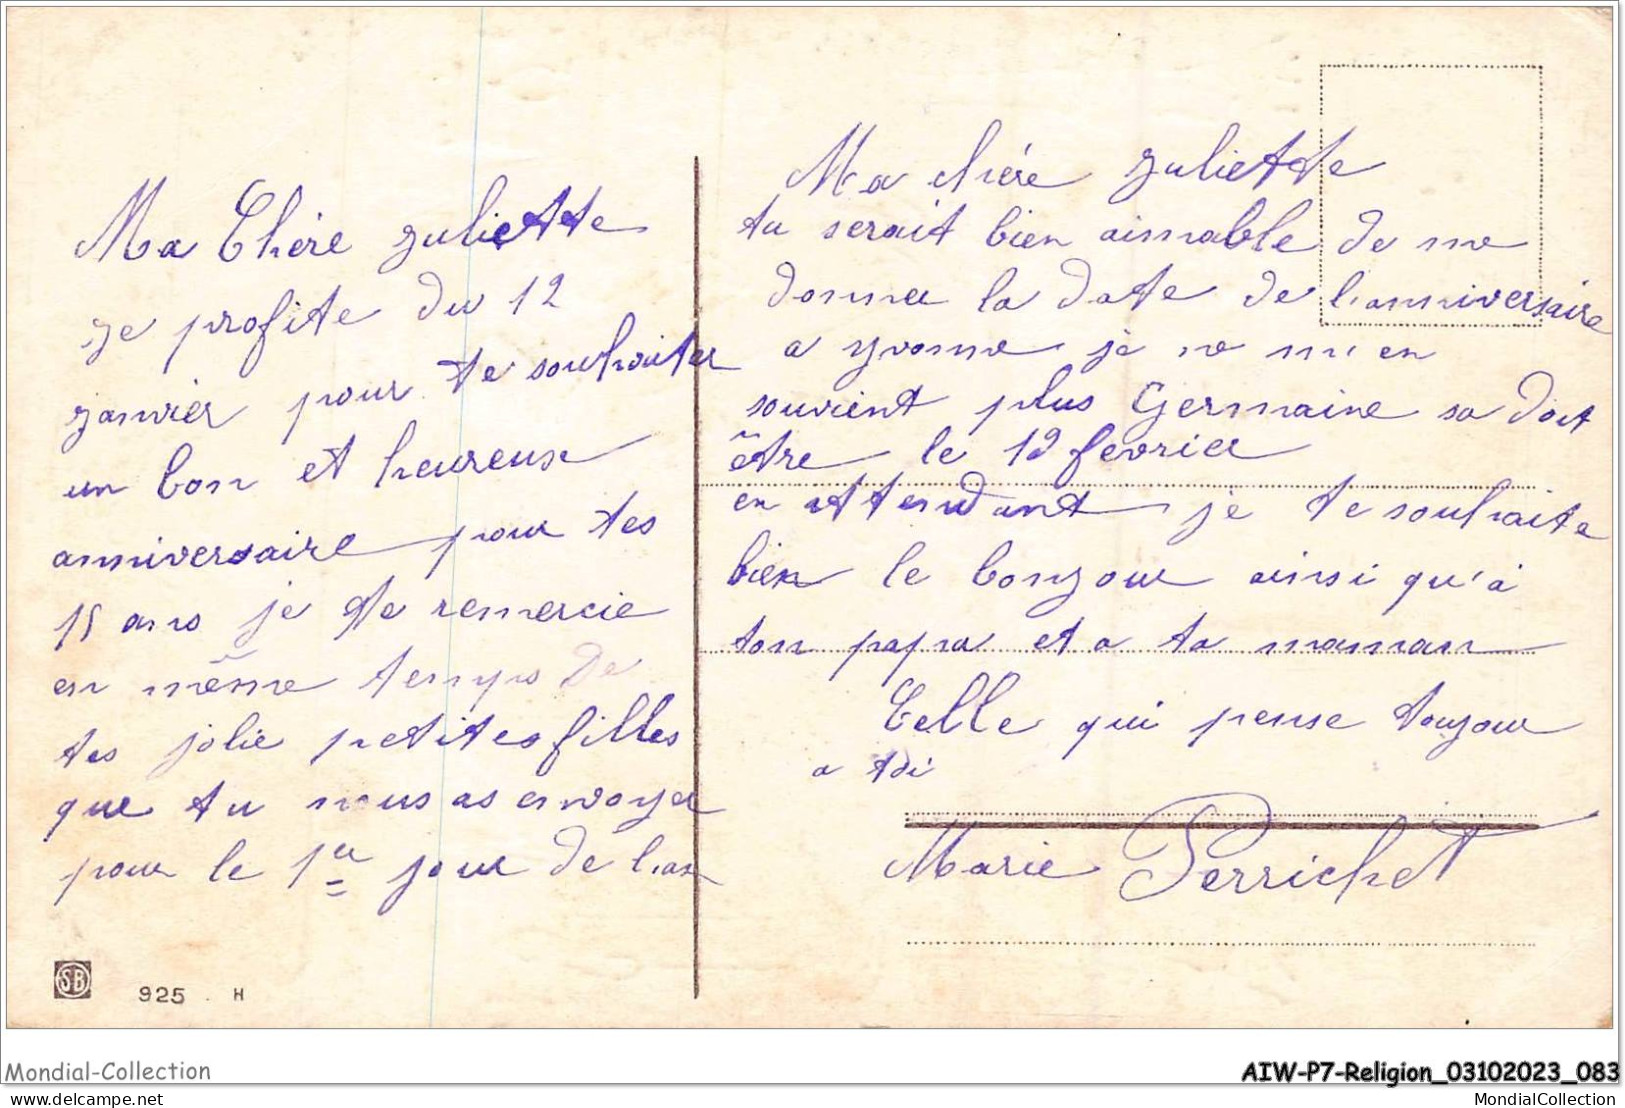 Ma Chère juliette
je profite du 12
janvier pour te souhaiter
un bon et heureuse
anniversaire pour tes
15 ans je te remercie
en même temps de
tes jolie petites filles
que tu nous as envoyer
pour le 1er jour de l'an
SB 925 H
Ma chère juliette
tu serait bien aimable de me
donner la date de l'anniversaire
a yvonne je ne m'en
souvient plus Germaine sa doit
être le 19 fevrier
en attendant je te souhaite
bien le bonjour ainsi qu'à
ton papa et a ta maman
Celle qui pense toujour
a toi
Marie Perrichet
Mondial-Collection
AIW-P7-Religion_03102023_083
delcampe.net
MondialCollection